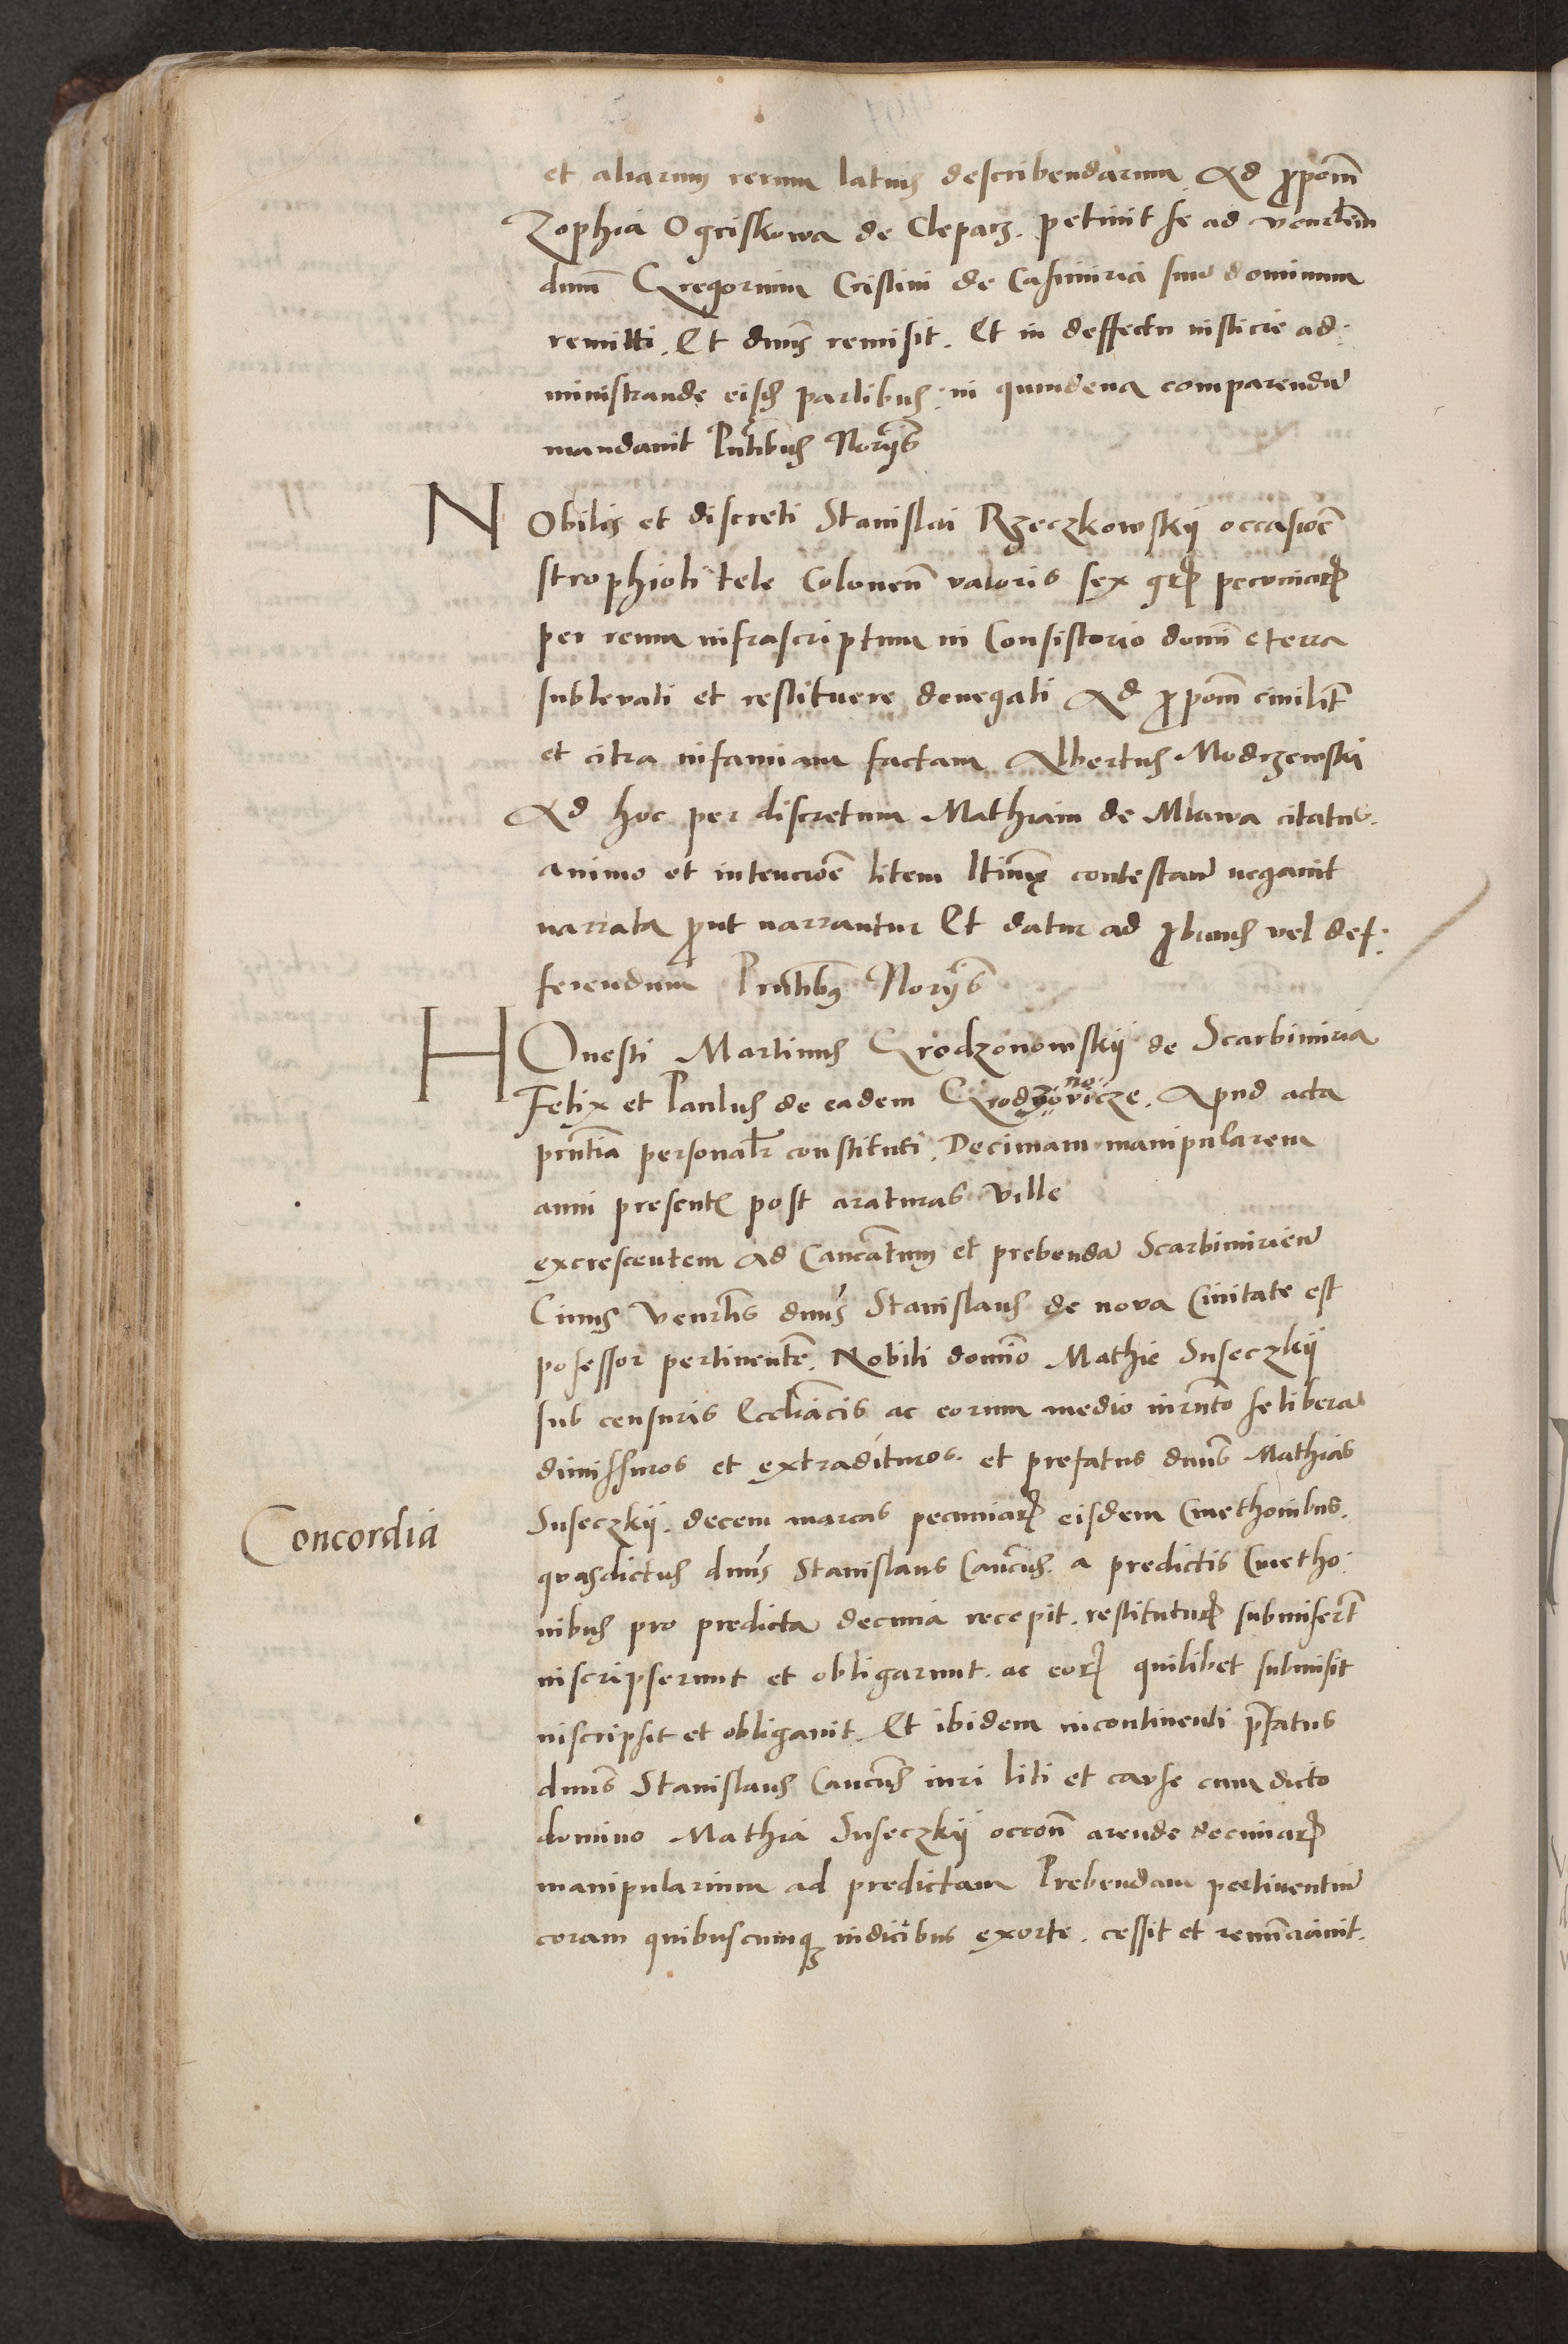 et aliarum rerum latius describendarum Ad p̱pom̅
Zophia Ogriskowa de Cleparz. petiuit se ad venrlem̅
dnm̅ Gregorium Cristini de Casimiria suu̅ dominum
remitti. Et dnus̅ remisit. Et in deffectu iusticie ad:
ministrande eisd partibus: in quindena comparendu̅
mandauit Pn̅tibus Nory̅s
NObilis et discreti Stanislai Rzeczkowskij occasioe̅
strophioli tele Colonen̅ valoris sex gr̅ pecuniar̅
per reum infrascriptum in Consistorio domi̅ e terra
subleuati et restituere denegati Ad p̱pom̅ ciuilit̅
et citra infamiam factam Albertus Modrzewski
Ad hoc per discretum Mathiam de Mlawa citatus.
animo et intencioe̅ litem ltime̅ contestan̅ negauit
narrata p̱ut narrantur Et datur ad p̱band vel def:
ferendum Pn̅tibus Nory̅s
HOnesti Martinus Grodzonowskij de Scarbimiria
Felix et Paulus de eadem Grodzonovicze. Apud acta
prn̅tia personalr̅ constituti. Decimam manipularem
anni present̅ post araturas ville
excrescentem Ad Cancatum̅ et prebenda̅ Scarbimirien̅
Cuius venrlis̅ dnus̅ Stanislaus de nova Ciuitate est
possessor pertinente̅. Nobili domi̅o Mathie Suseczkij
sub censuris Eccliacis̅ ac eorum medio iurnto̅ se libera
dimissuros et extradituros. et prefatus dnus̅ Mathias
Suseczkij. decem marcas pecuniar̅ eisdem Cmethonibus.
Concordia
quas dictus dnus̅ Stanislaus Cancius̅. a predictis Cmetho:
nibus pro predicta decima recepit. restitutur̅ submisert̅
inscripserunt et obligarunt. ac eor̅ quilibet submisit
inscripsit et obligauit. Et ibidem incontinenti p̅fatus
dnus̅ Stanislaus Cancius̅ iuri liti et cause cum dicto
domino Mathia Suseczkij occon̅ arende decimar̅
manipularium ad predictam Prebendam pertinentiu̅
coram quibuscumqꝫ iudicibus exorte. cessit et renu̅ciauit.